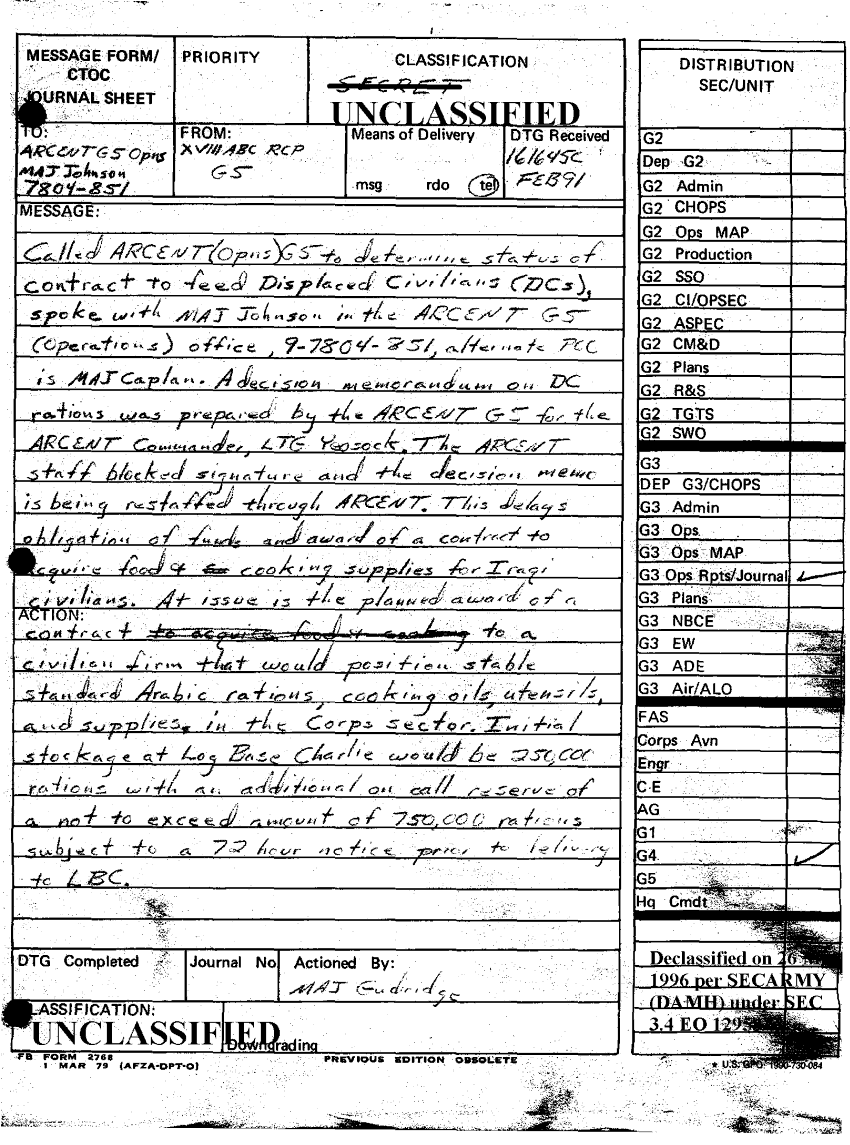 MESSAGE FORM/
CTOC
JOURNAL SHEET
PRIORITY
CLASSIFICATION
SECRET
UNCLASSIFIED
TO:
ARCENT G5 Opns
MAJ Johnson
7804-851
FROM:
XVIII ABC RCP
G5
Means of Delivery
msg rdo tel
DTG Received
161645C
FEB91
MESSAGE:
Called ARCENT (Opns) G5 to determine status of
contract to feed Displaced Civilians (DCs),
spoke with MAJ Johnson in the ARCENT G5
(Operations) office, 9-7804-851, alternate POC
is MAJ Caplan. A decision memorandum on DC
rations was prepared by the ARCENT G5 for the
ARCENT Commander, LTG Yeosock. The ARCENT
staff blocked signature and the decision memo
is being restaffed through ARCENT. This delays
obligation of funds and award of a contract to
acquire food & cooking supplies for Iraqi
civilians. At issue is the planned award of a
ACTION:
contract to acquire food & cooking to a
civilian firm that would position stable
standard Arabic rations, cooking oils, utensils,
and supplies, in the Corps sector. Initial
stockage at Log Base Charlie would be 250,000
rations with an additional on call reserve of
a not to exceed amount of 750,000 rations
subject to a 72 hour notice prior to delivery
to LBC.
DTG Completed
Journal No
Actioned By:
MAJ Gudridge
CLASSIFICATION:
UNCLASSIFIED
Downgrading
FB FORM 2768
1 MAR 79 (AFZA-DPT-O)
PREVIOUS EDITION OBSOLETE
DISTRIBUTION
SEC/UNIT
G2
Dep G2
G2 Admin
G2 CHOPS
G2 Ops MAP
G2 Production
G2 SSO
G2 CI/OPSEC
G2 ASPEC
G2 CM&D
G2 Plans
G2 R&S
G2 TGTS
G2 SWO
G3
DEP G3/CHOPS
G3 Admin
G3 Ops
G3 Ops MAP
G3 Ops Rpts/Journal
G3 Plans
G3 NBCE
G3 EW
G3 ADE
G3 Air/ALO
FAS
Corps Avn
Engr
C-E
AG
G1
G4
G5
Hq Cmdt
Declassified on 26
1996 per SECARMY
(DAMH) under SEC
3.4 EO
★ U.S. GPO: 1990-730-084